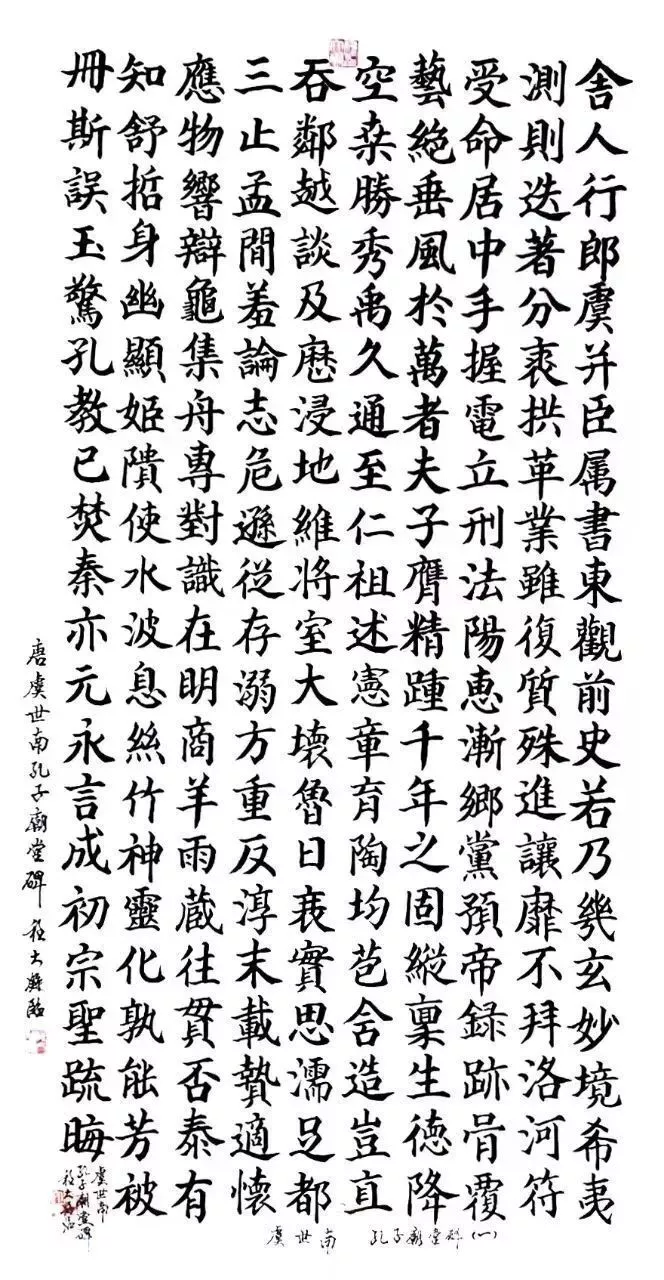 舍人行郎虞并臣属書東觀前史若乃幾玄妙境希夷
測則迭著分裘拱革業雖復質殊進讓靡不拜洛河符
受命居中手握電立刑法陽恵漸鄉黨預帝錄跡骨覆
藝絶垂風於萬者夫子膺精踵千年之固縱稟生德降
空桒勝秀禹久通至仁祖述憲章育陶均苞舍造豈直
吞鄰越談及歴浸地維將室大壊魯日衰實思濡足都
三止孟閒羞論志危遜從存溺方重反淳末載贄適懷
應物響辯龜集舟專對識在明商羊雨蔵往貫否泰有
知舒哲身幽顯姬隤使水波息絲竹神靈化孰能芳被
冊斯誤玉驚孔教已焚秦亦元永言成初宗聖疏晦
唐虞世南孔子廟堂碑 大臨
虞世南
孔子廟堂碑
虞世南 孔子廟堂碑(一)